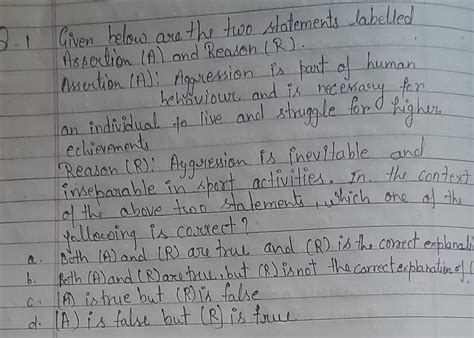 Q.1 Given below are the two statements labelled
Assertion (A) and Reason (R).
Assertion (A): Aggression is part of human
behaviour and is necessary for
an individual to live and struggle for higher
echievements
Reason (R): Aggression is inevitable and
inseparable in sport activities. In the context
of the above two statements, which one of the
following is correct?
a. Both (A) and (R) are true and (R) is the correct explanati
b. Both (A) and (R) are true, but (R) is not the correct explanation of (
c. (A) is true but (R) is false
d. (A) is false but (R) is true